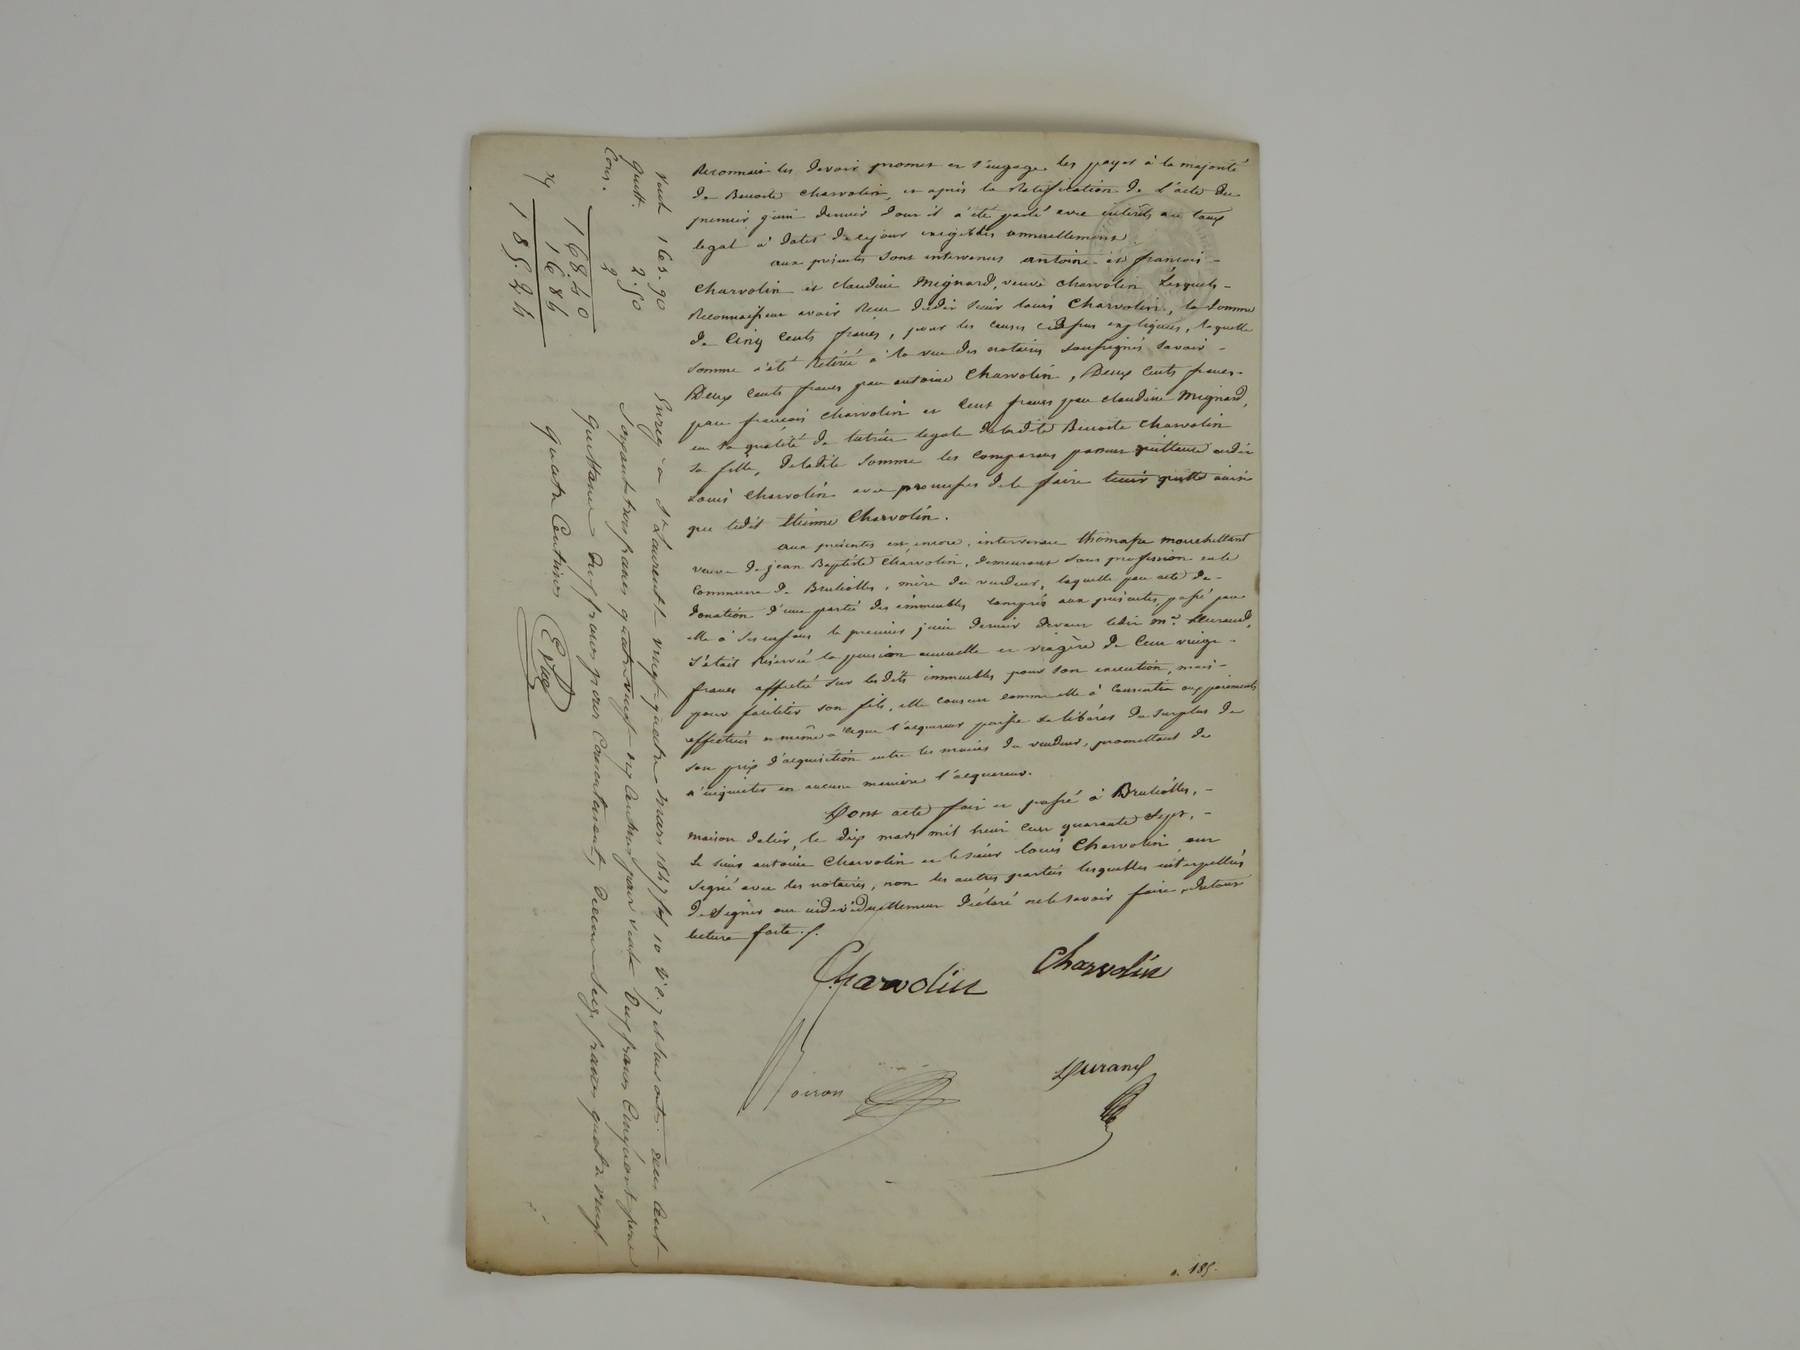 Reconnait les devoir promet et s'engage les payer à la majorité
de Benoite Charvolin, et après la Ratification de l'acte du
premier juin dernier dont il a été parlé avec intérêts au taux
legal à dater de ce jour exigibles annuellement.
aux présentes sont intervenus antoine et françois
Charvolin et claudine Mignard, veuve charvolin Lesquels
Reconnaissent avoir Reçu dudit sieur Louis Charvolin, la somme
de Cinq Cents francs, pour les causes cidessus expliquées, laquelle
somme a été Retirée à la vue des notaires soussignés savoir
Deux cents francs par antoine Charvolin, Deux Cents francs
par françois charvolin et Cent francs par claudine Mignard,
en sa qualité de tutrice legale de ladite Benoite Charvolin
sa fille, de ladite somme les comparans passent quittance audit
Louis Charvolin avec promesse de le faire tenir quitte ainsi
que ledit Etienne Charvolin.
aux présentes est encore intervenue thomasse mouchettant
veuve de jean Baptiste Charvolin, demeurant sans profession en la
Commune de Brulioles, mère du vendeur, laquelle par acte de
donation d'une partie des immeubles compris aux présentes, passé par
elle à ses enfans le premier juin dernier devant ledit me Durand,
s'était Réservée la pension annuelle et viagère de Cent vingt
francs affectée sur lesdits immeubles pour son exécution, mais
pour faciliter son fils, elle consent comme elle a consentie aux paiements
effectués et même a ce que l'acquereur puisse se libérer du surplus de
son prix d'acquisition entre les mains du vendeur, promettant de
n'inquieter en aucune manière l'acquereur.
Dont acte fait et passé à Brulioles,
maison dalix, le dix mars mil huit cent quarante Sept,
Le sieur antoine Charvolin et le sieur Louis Charvolin ont
signé avec les notaires, non les autres parties lesquelles interpellées
de signer ont individuellement déclaré ne le savoir faire, du tout
lecture faite./.
Charvolin Charvolin
Noiron Durand
Enreg. à St Laurent le vingt quatre Mars 1847 fol 10 Vo. 7 et suivants. Reçu Cent
soixante trois francs quatre vingt dix centimes pour vente Deux francs Cinquante pour
quittance Deux francs pour Consentement, Decime seize francs quatre vingt
quatre Centimes
Vente 163.90
Quitt. 2.50
Cons. 2
168.40
16.84
185.24
185.